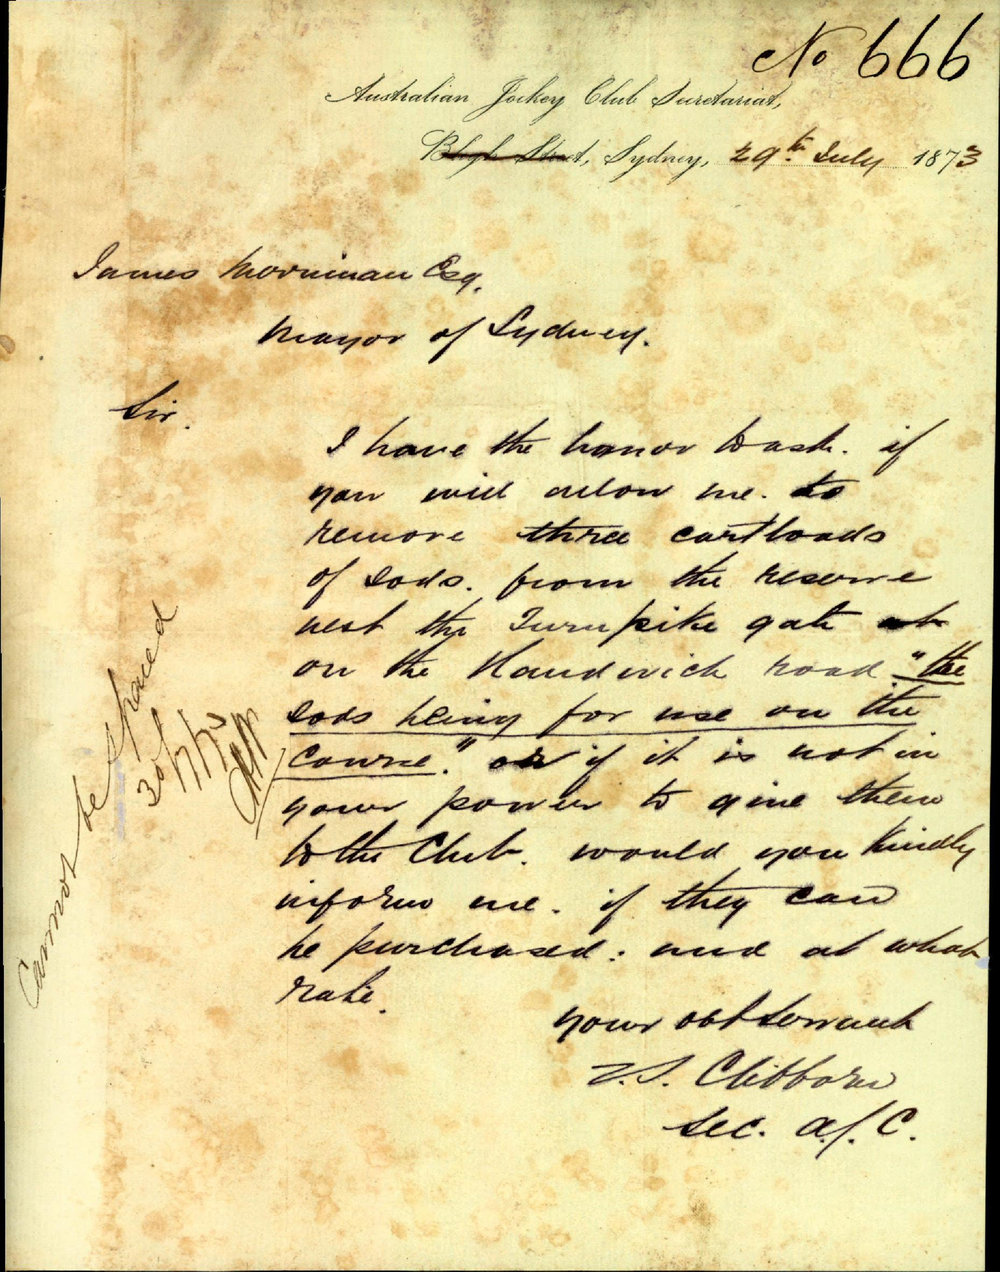 No 666
Australian Jockey Club Secretariat,
Bligh Street, Sydney, 29th July 1873
James Merriman Esq.
Mayor of Sydney.
Sir.
I have the honor to ask. if
you will allow me. to
remove three cartloads
of sods. from the reserve
next the Turnpike gate
on the Randwick road "the
sods being for use on the
course." or if it is not in
your power to give them
to the Club. would you kindly
inform me. if they can
be purchased: and at what
rate.
your obt Servant
T.S. Clibborn
Sec. A.J.C.
Cannot be Spared
30/7/73